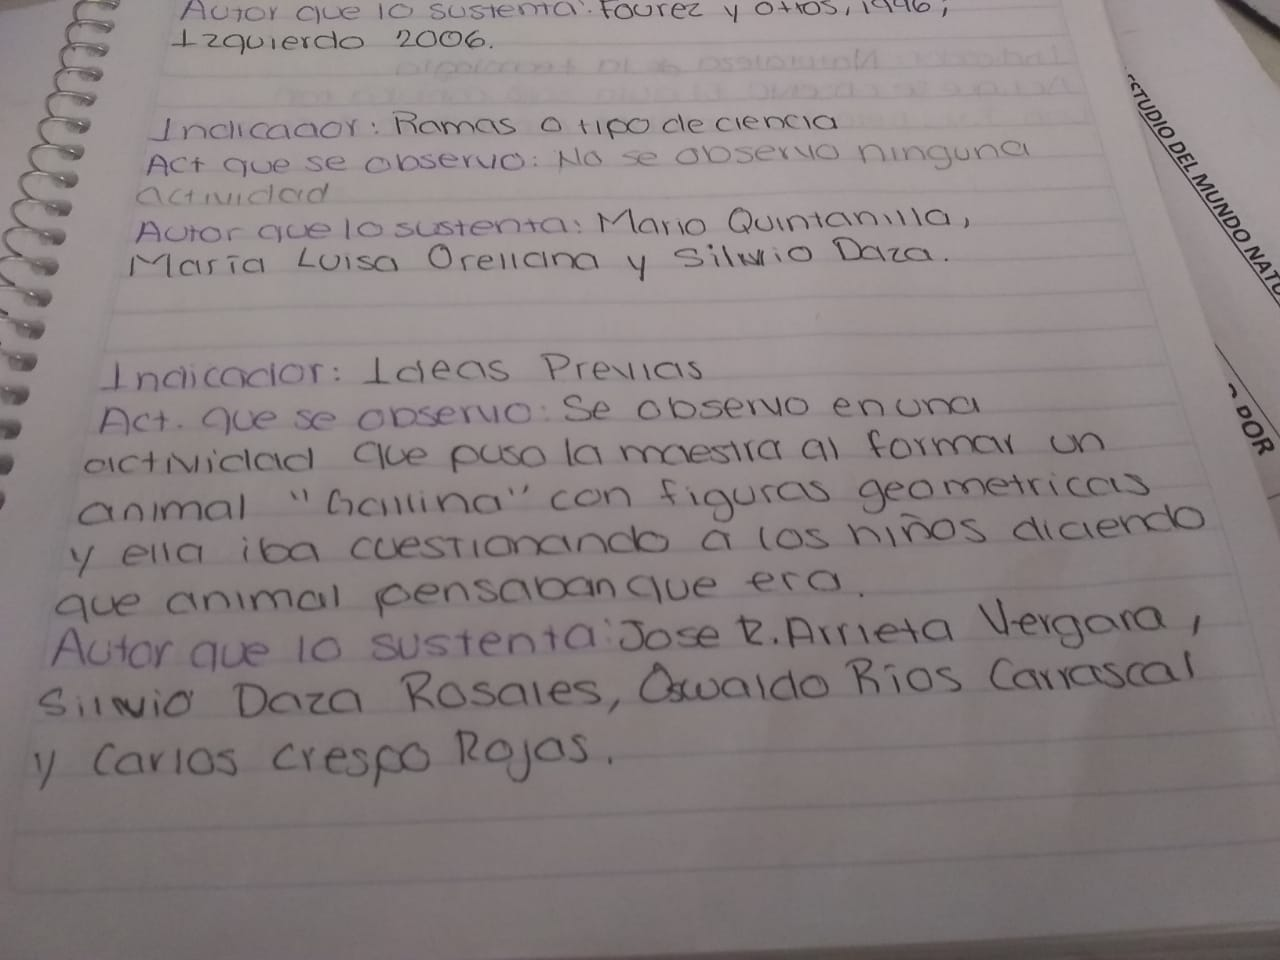 Autor que lo sustenta: Fourez y otros, 1996;
Izquierdo 2006.
Indicador: Ramas o tipo de ciencia
Act que se observo: No se observo ninguna
actividad
Autor que lo sustenta: Mario Quintanilla,
María Luisa Orellana y Silvio Daza.
Indicador: Ideas Previas
Act. que se observo: Se observo en una
actividad que puso la maestra al formar un
animal "Gallina" con figuras geometricas
y ella iba cuestionando a los niños diciendo
que animal pensaban que era.
Autor que lo sustenta: Jose R. Arrieta Vergara,
Silvio Daza Rosales, Oswaldo Ríos Carrascal
y Carlos Crespo Rojas.
STUDIO DEL MUNDO NATU
POR